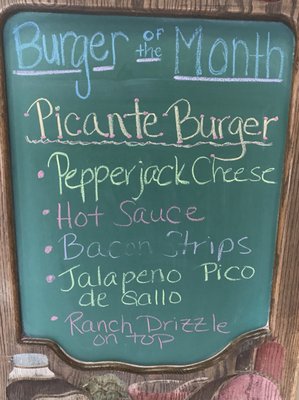 Burger of the Month
Picante Burger
• Pepperjack Cheese
• Hot Sauce
• Bacon Strips
• Jalapeno Pico
de Gallo
• Ranch Drizzle
on top